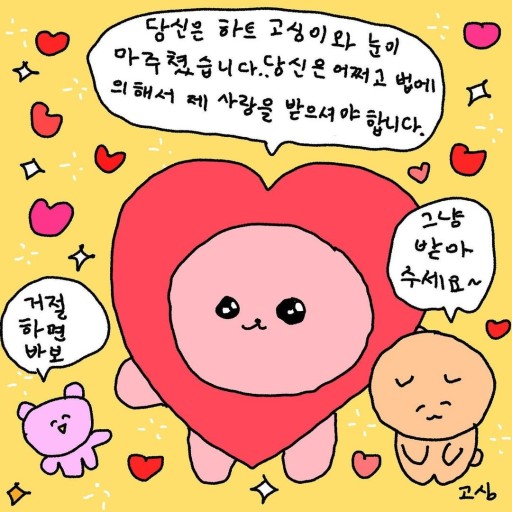 당신은 하트 고심이와 눈이
마주쳤습니다..당신은 어쩌고 법에
의해서 제 사랑을 받으셔야 합니다.
그냥
받아
주세요~
거절
하면
바보
고심